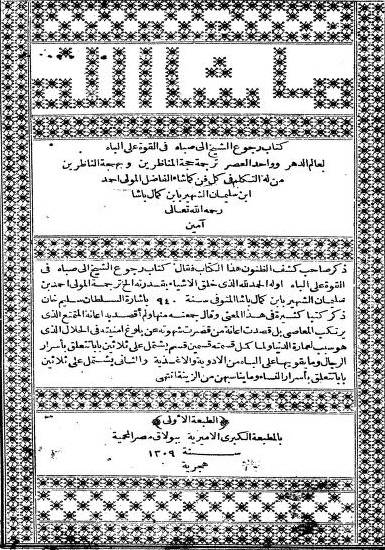 ما شاء الله
كتاب رجوع الشيخ الى صباه فى القوة على الباه
لعالم الدهر وواحد العصر ترجمة حجة المناظرين وبهجة الناظرين
من له التكلم فى كل فن كماشاء الفاضل المولى احمد
ابن سليمان الشهير بابن كمال باشا
رحمه الله تعالى
آمين
ذكر صاحب كشف الظنون هذا الكتاب فقال كتاب رجوع الشيخ الى صباه فى
القوة على الباه اوله الحمد لله الذى خلق الاشياء بقدرته الخ ترجمة المولى احمد بن
سليمان الشهير بابن كمال باشا المتوفى سنة ٩٤٠ باشارة السلطان سليم خان
ذكر كتبا كثيرة فى هذا المعنى وقال جمعته منها ولم أقصد به اعانة المتمتع الذى
يرتكب المعاصى بل قصدت اعانة من قصرت شهوته عن بلوغ امنيته فى الحلال الذى
هو سبب لعمارة الدنيا ولما كمل قسمته قسمين قسم يشتمل على ثلاثين بابا تتعلق بأسرار
الرجال وما يقويها على الباه من الادوية والاغذية والثانى يشتمل على ثلاثين
بابا تتعلق بأسرار النساء وما يناسبهن من الزينة انتهى
﴿الطبعة الاولى﴾
بالمطبعة الكبرى الاميرية ببولاق مصر المحمية
سنة ١٣٠٩
هجرية